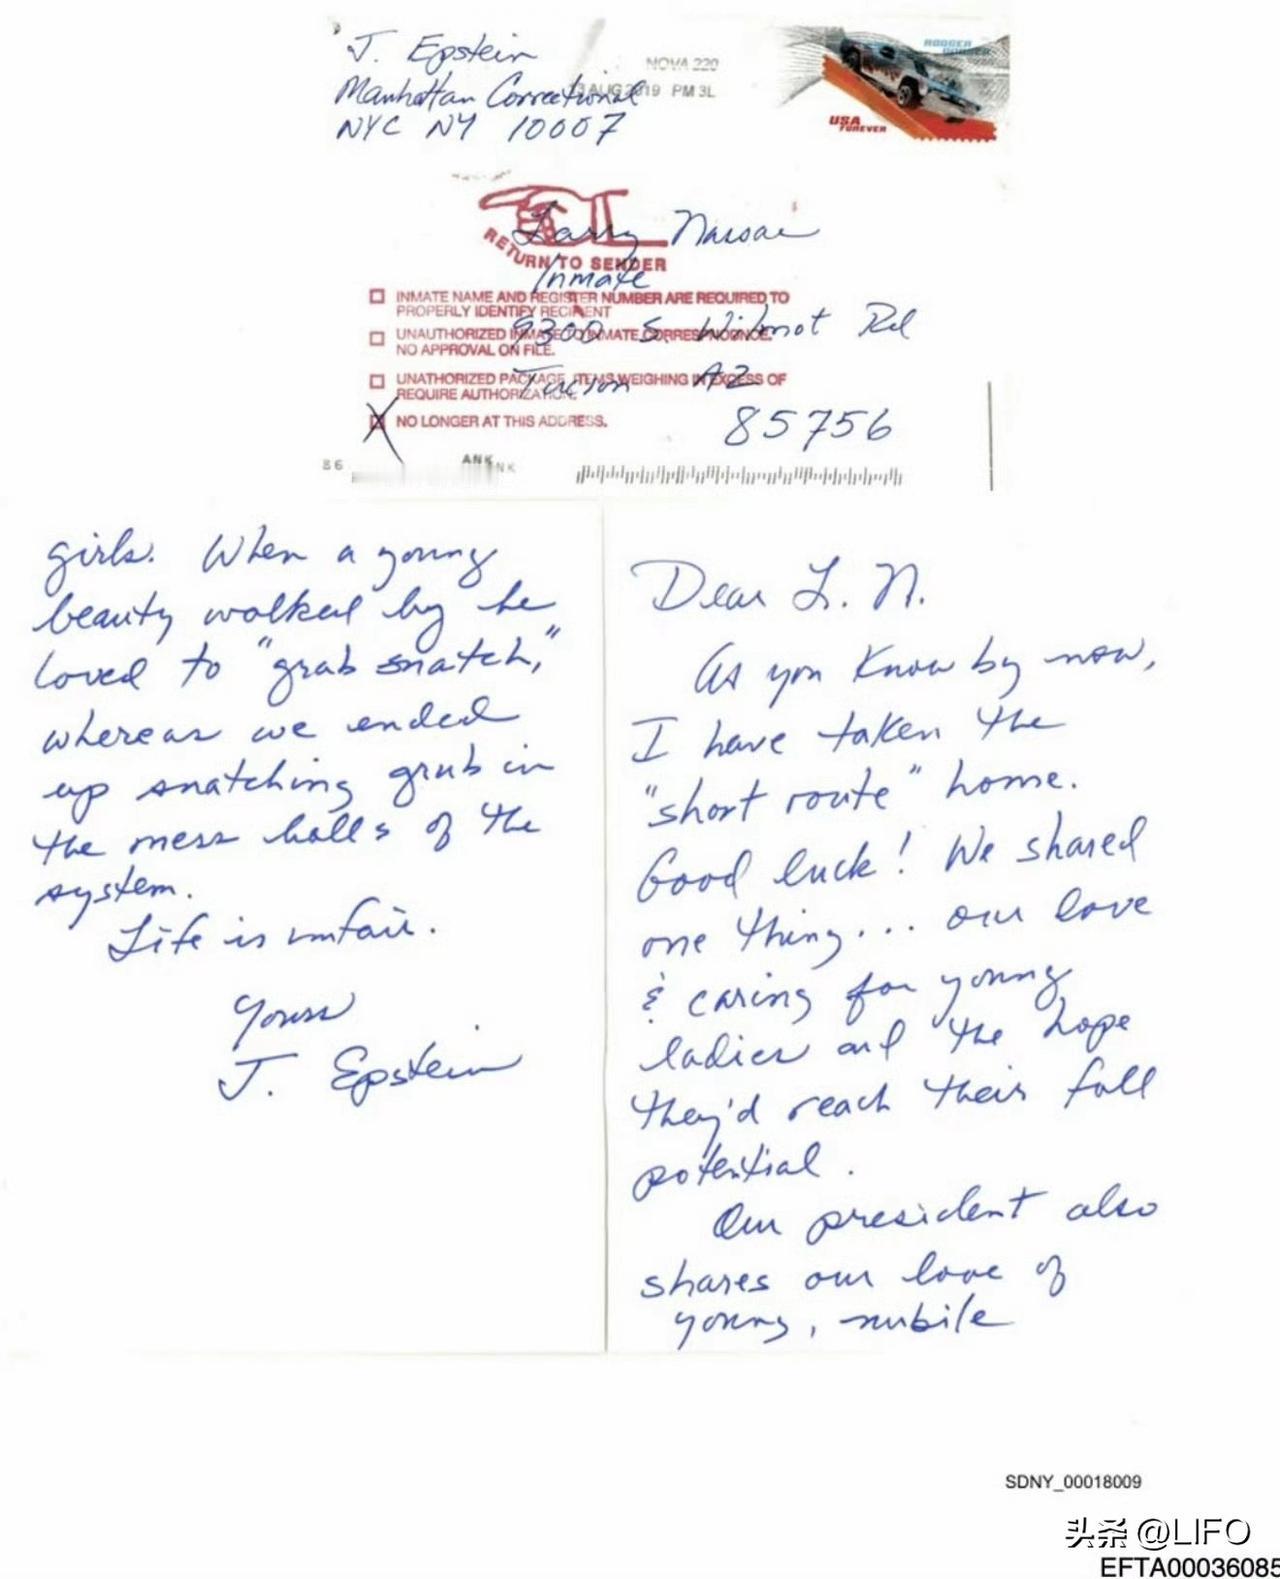 J. Epstein
Manhattan Correctional
NYC NY 10007
NOVA 220
13 AUG 2019 PM 3L
RODGER DODGER
USA
FOREVER
RETURN TO SENDER
Larry Nassar
Inmate
9300 S. Wilmot Rd
Tucson AZ
85756
INMATE NAME AND REGISTER NUMBER ARE REQUIRED TO
PROPERLY IDENTIFY RECIPIENT
UNAUTHORIZED INMATE TO INMATE CORRESPONDENCE.
NO APPROVAL ON FILE.
UNATHORIZED PACKAGE, ITEMS WEIGHING IN EXCESS OF
REQUIRE AUTHORIZATION.
X NO LONGER AT THIS ADDRESS.
86
ANK
NK
Dear L. N.
As you know by now,
I have taken the
"short route" home.
Good luck! We shared
one thing... our love
& caring for young
ladies and the hope
they'd reach their full
potential.
Our president also
shares our love of
young, nubile
girls. When a young
beauty walked by he
loved to "grab snatch,"
whereas we ended
up snatching grub in
the mess halls of the
system.
Life is unfair.
Yours
J. Epstein
SDNY_00018009
头条 @LIFO
EFTA00036085